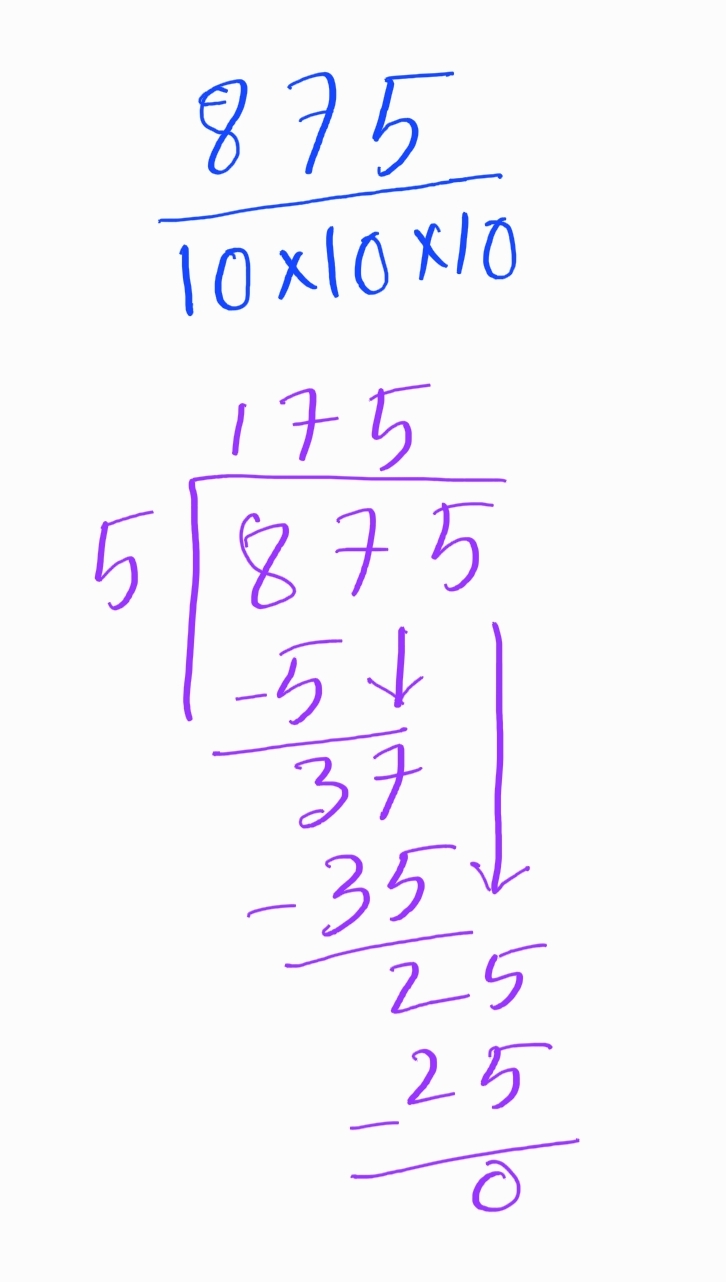 875
10×10×10
175
5 875
-5
37
-35
25
-25
0